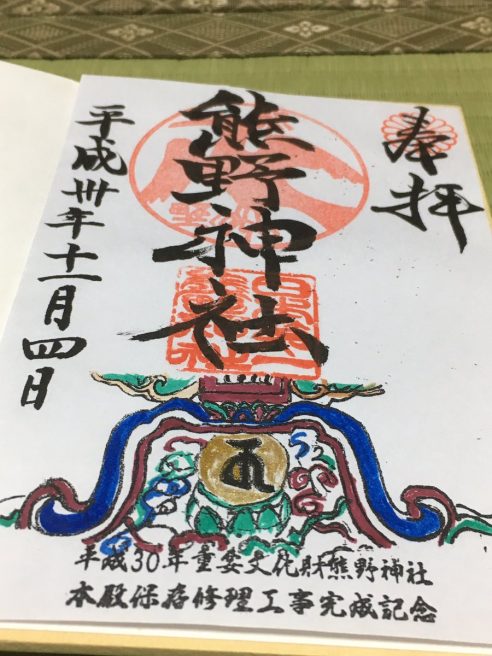 奉拝
熊野神社
平成卅年十一月四日
平成30年重要文化財熊野神社
本殿保存修理工事完成記念